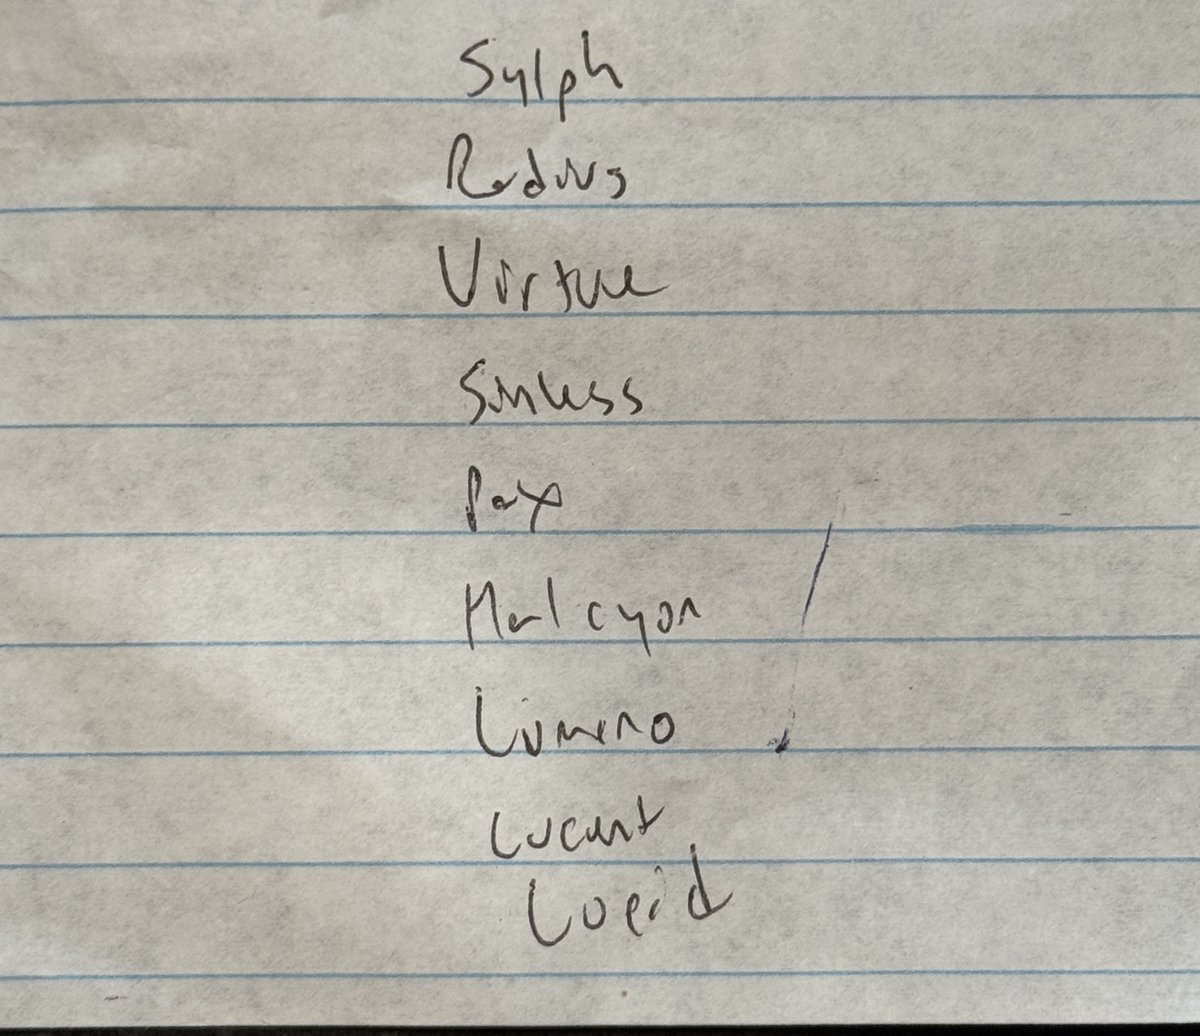 Sylph
Radius
Virtue
Sinless
Pax
Halcyon
Lumeno
Lucent
Lucid